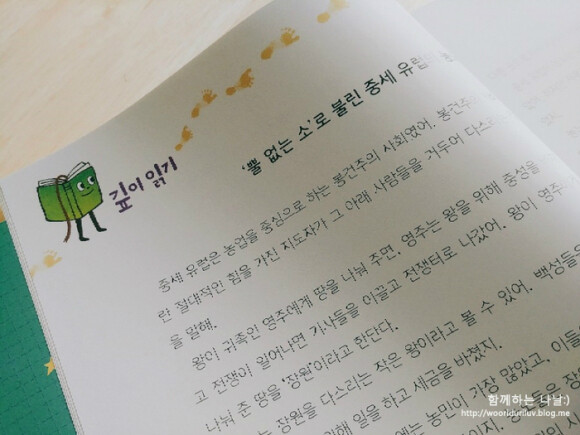 깊이 읽기
'뿔 없는 소'로 불린 중세 유럽
중세 유럽은 농업을 중심으로 하는 봉건주의 사회였어. 봉건주
란 절대적인 힘을 가진 지도자가 그 아래 사람들을 거두어 다스
을 말해.
왕이 귀족인 영주에게 땅을 나눠 주면, 영주는 왕을 위해 충성을
고 전쟁이 일어나면 기사들을 이끌고 전쟁터로 나갔어. 왕이 영주
나눠 준 땅을 '장원'이라고 한단다.
장원을 다스리는 작은 왕이라고 볼 수 있어. 백성들
위해 일을 하고 세금을 바쳤지.
에는 농민이 가장 많았고, 이들
함께하는 나날:)
http://wooriduriluv.blog.me